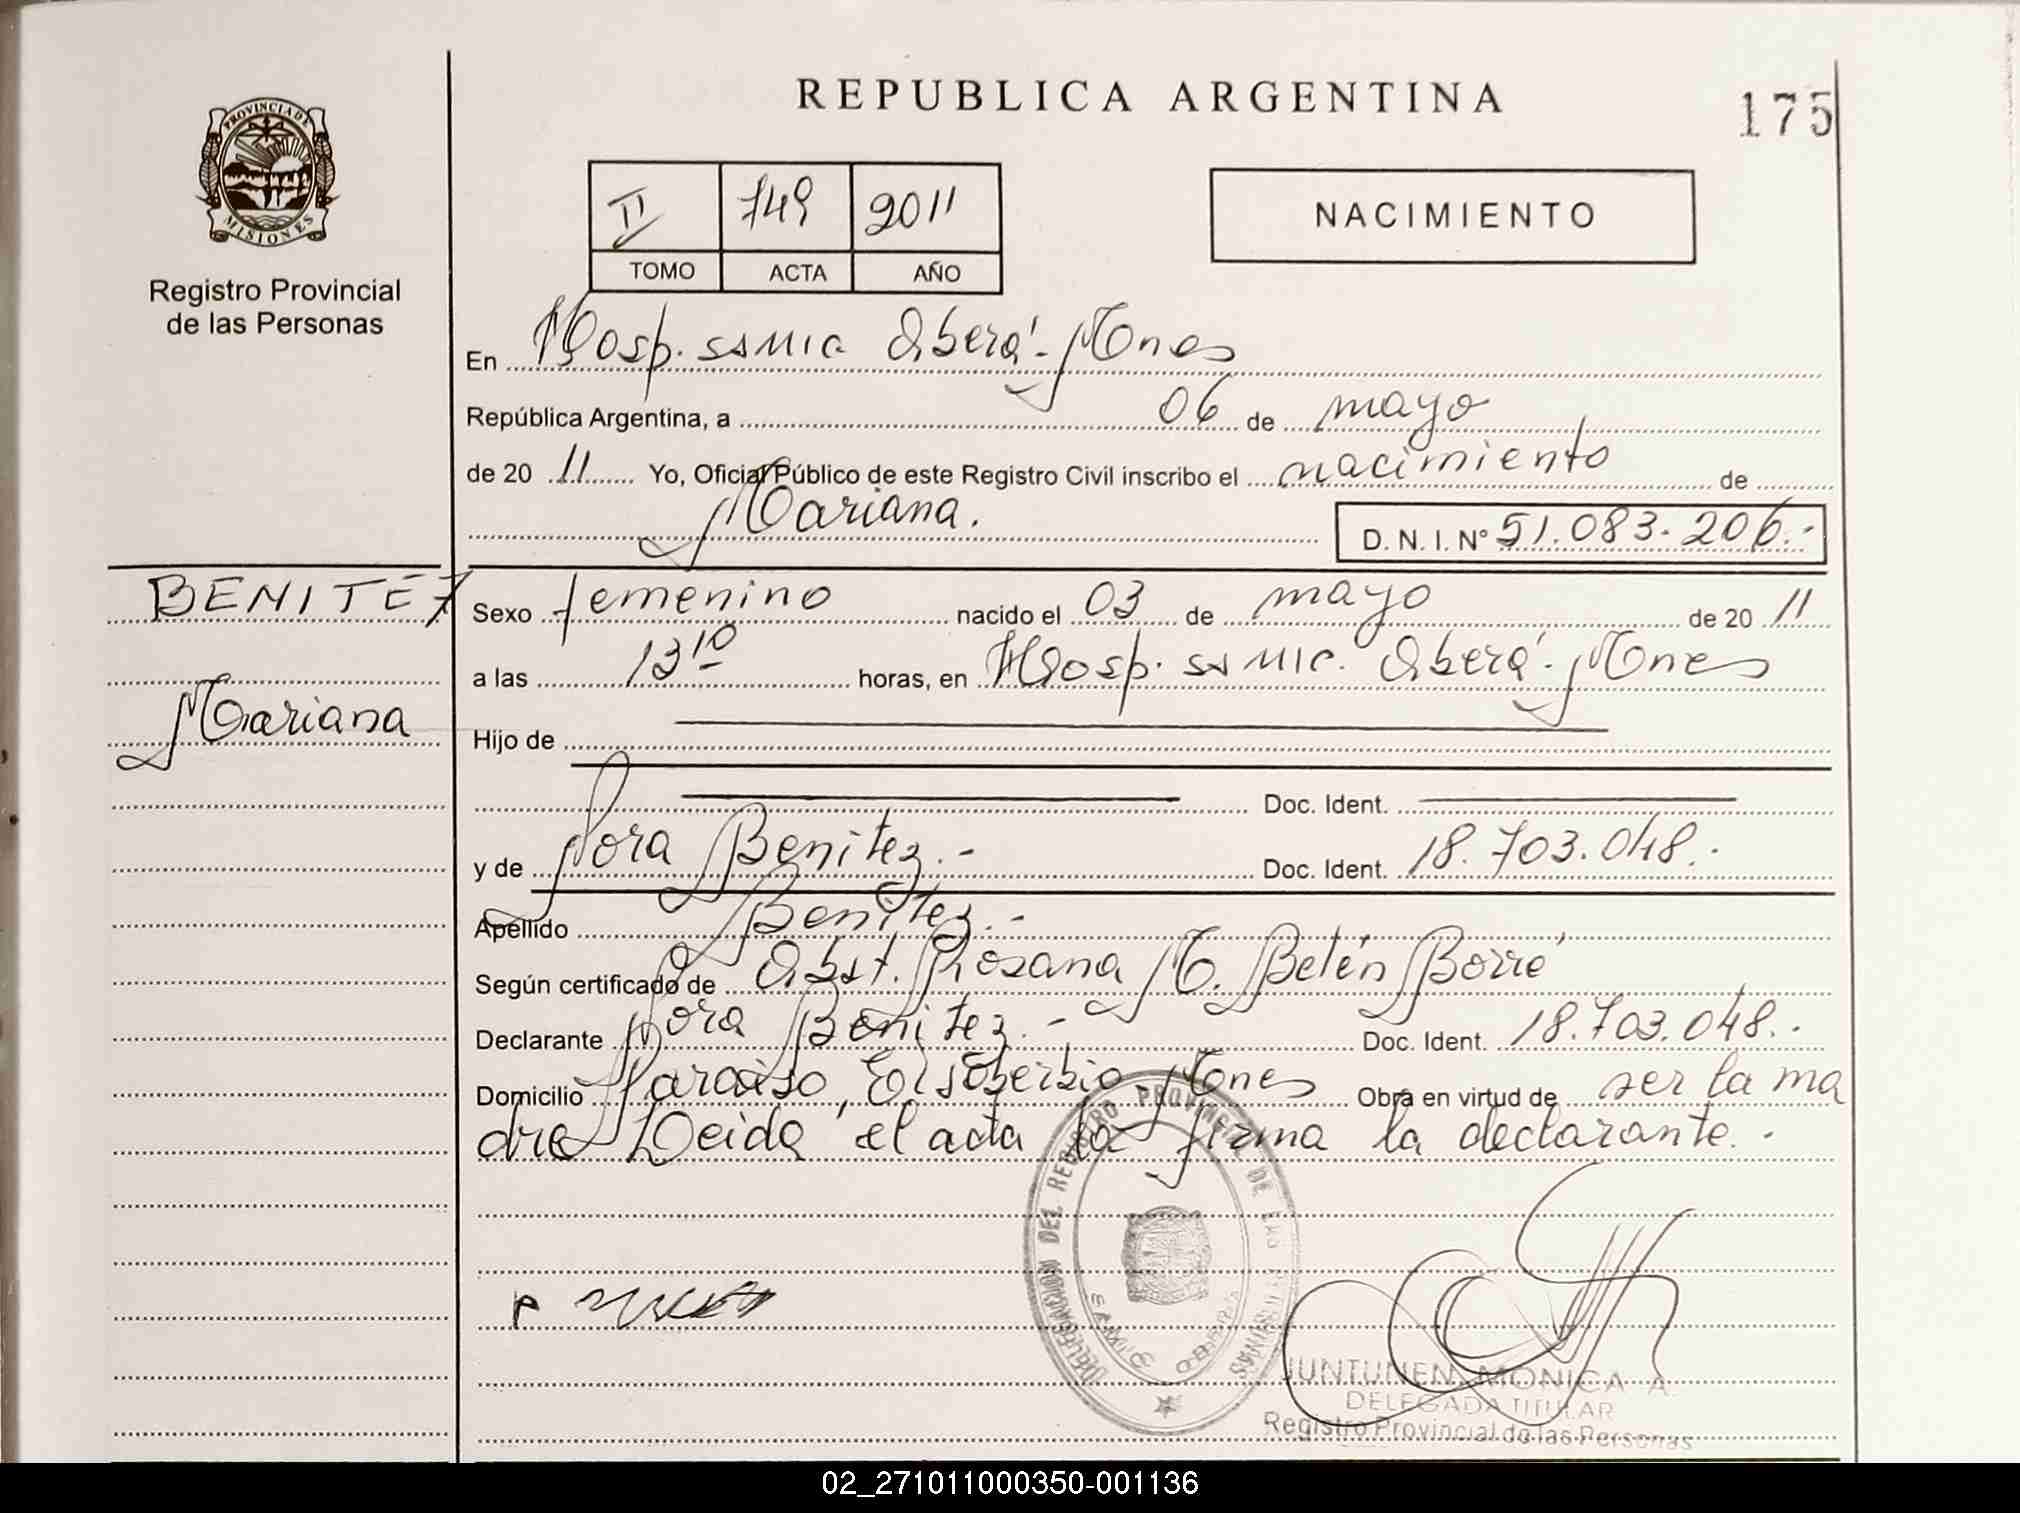 REPUBLICA ARGENTINA
175
PROVINCIA DE
MISIONES
Registro Provincial
de las Personas
II 749 2011
TOMO ACTA AÑO
NACIMIENTO
En Hosp. SAMIC Oberá - Mnes
República Argentina, a 06 de mayo
de 20 11 Yo, Oficial Público de este Registro Civil inscribo el nacimiento de
Mariana.
D. N. I. Nº 51.083.206.-
BENITEZ
Mariana
Sexo femenino nacido el 03 de mayo de 20 11
a las 13 10 horas, en Hosp. SAMIC. Oberá - Mnes
Hijo de
Doc. Ident.
y de Nora Benitez.- Doc. Ident. 18.703.048.-
Apellido Benitez.-
Según certificado de Obst. Rosana M. Belén Borré
Declarante Nora Benitez.- Doc. Ident. 18.703.048.-
Domicilio Paraiso, El Soberbio Mnes Obra en virtud de ser la ma
dre Leida el acta la firma la declarante.-
DELEGACION DEL REGISTRO PROVINCIAL DE LAS PERSONAS
SAMIC OBERA
JUNTUNEN MONICA A
DELEGADA TITULAR
Registro Provincial de las Personas
02_271011000350-001136